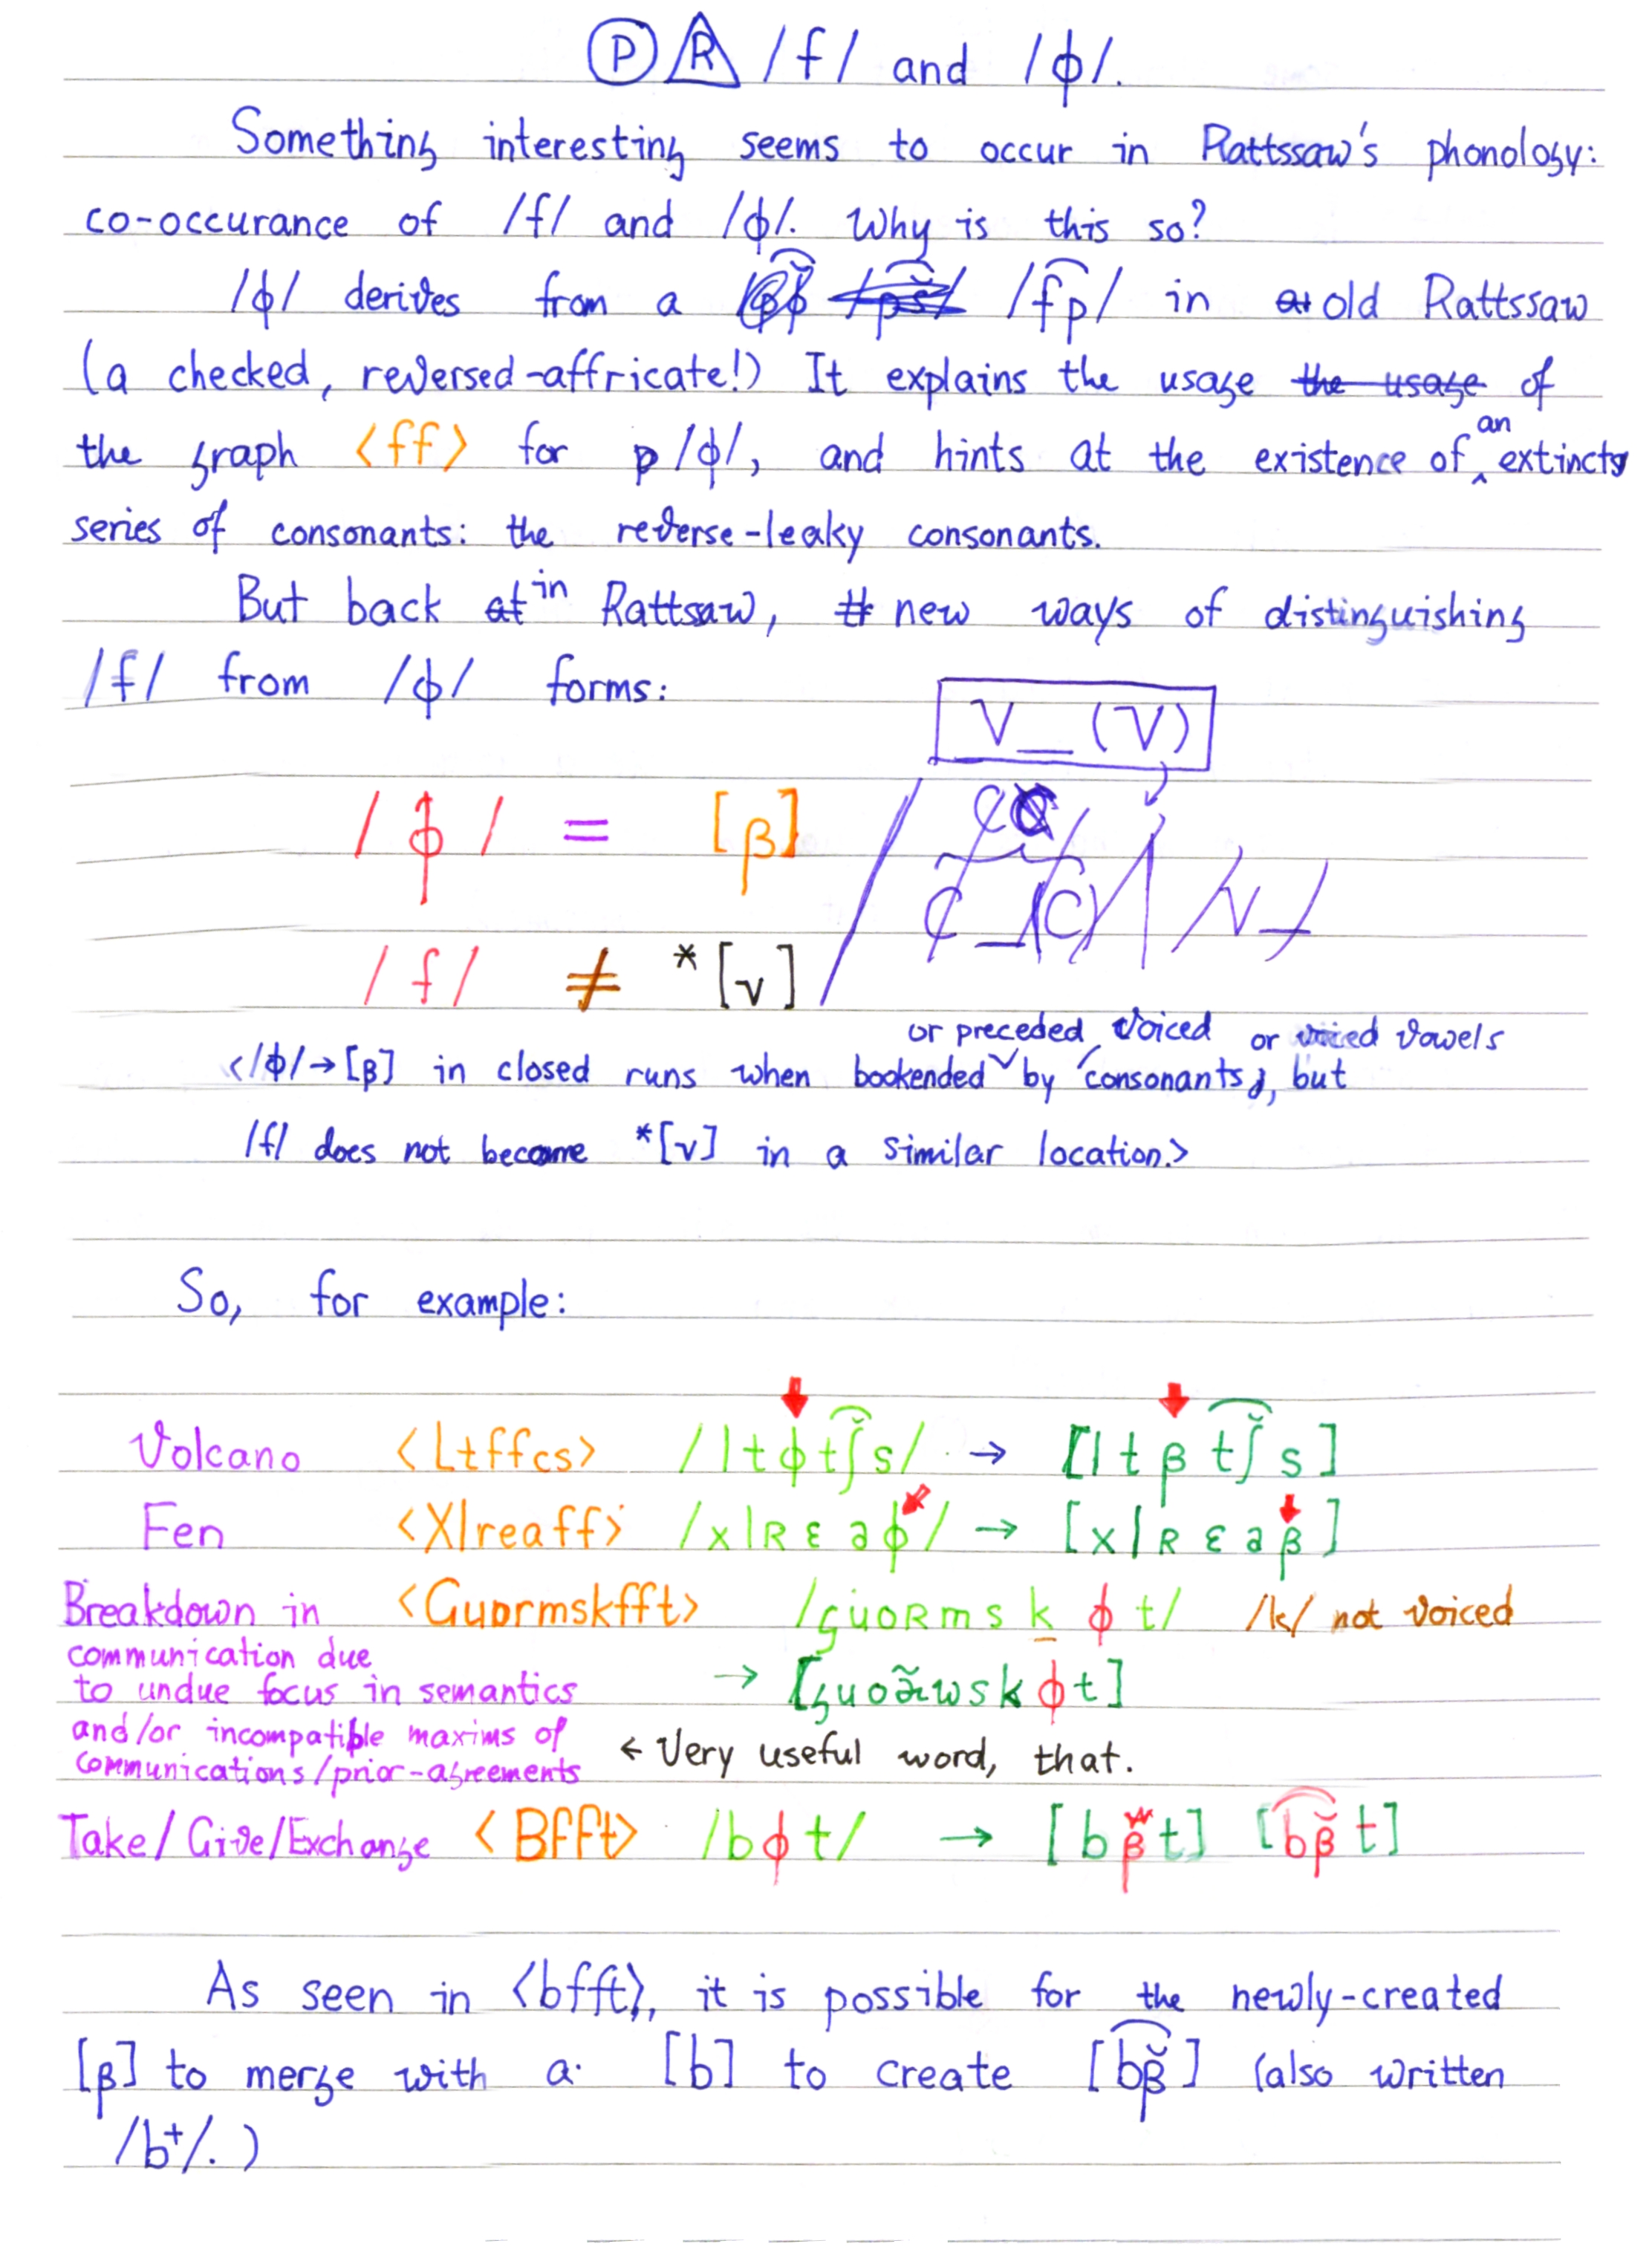 P R /f/ and /ɸ/.
Something interesting seems to occur in Rattssaw's phonology:
co-occurance of /f/ and /ɸ/. Why is this so?
/ɸ/ derives from a /f͡p/ in old Rattssaw
(a checked, reversed-affricate!) It explains the usage the usage of
the graph <ff> for /ɸ/, and hints at the existence of an extinct
series of consonants: the reverse-leaky consonants.
But back at in Rattsaw, new ways of distinguishing
/f/ from /ɸ/ forms:
V_(V)
/ɸ/ = [β]
C_(C)
/f/ ≠ *[v]
or preceded voiced or voiced vowels
</ɸ/→[β] in closed runs when bookended by consonants, but
/f/ does not become *[v] in a similar location.>
So, for example:
Volcano <Ltffcs> /ltɸt͡ʃ̆s/ → [ltβt͡ʃ̆s]
Fen <Xlreaff> /xlʀɛaɸ/ → [xlʀɛaβ]
Breakdown in <Guormskfft> /guoʀmskɸt/ /k/ not voiced
communication due
to undue focus in semantics → [guoã̯wskɸt]
and/or incompatible maxims of
communications/prior-agreements ← Very useful word, that.
Take/Give/Exchange <Bfft> /bɸt/ → [bβt] [b͡β̆t]
As seen in <bfft>, it is possible for the newly-created
[β] to merge with a [b] to create [b͡β̆] (also written
/b⁺/.)